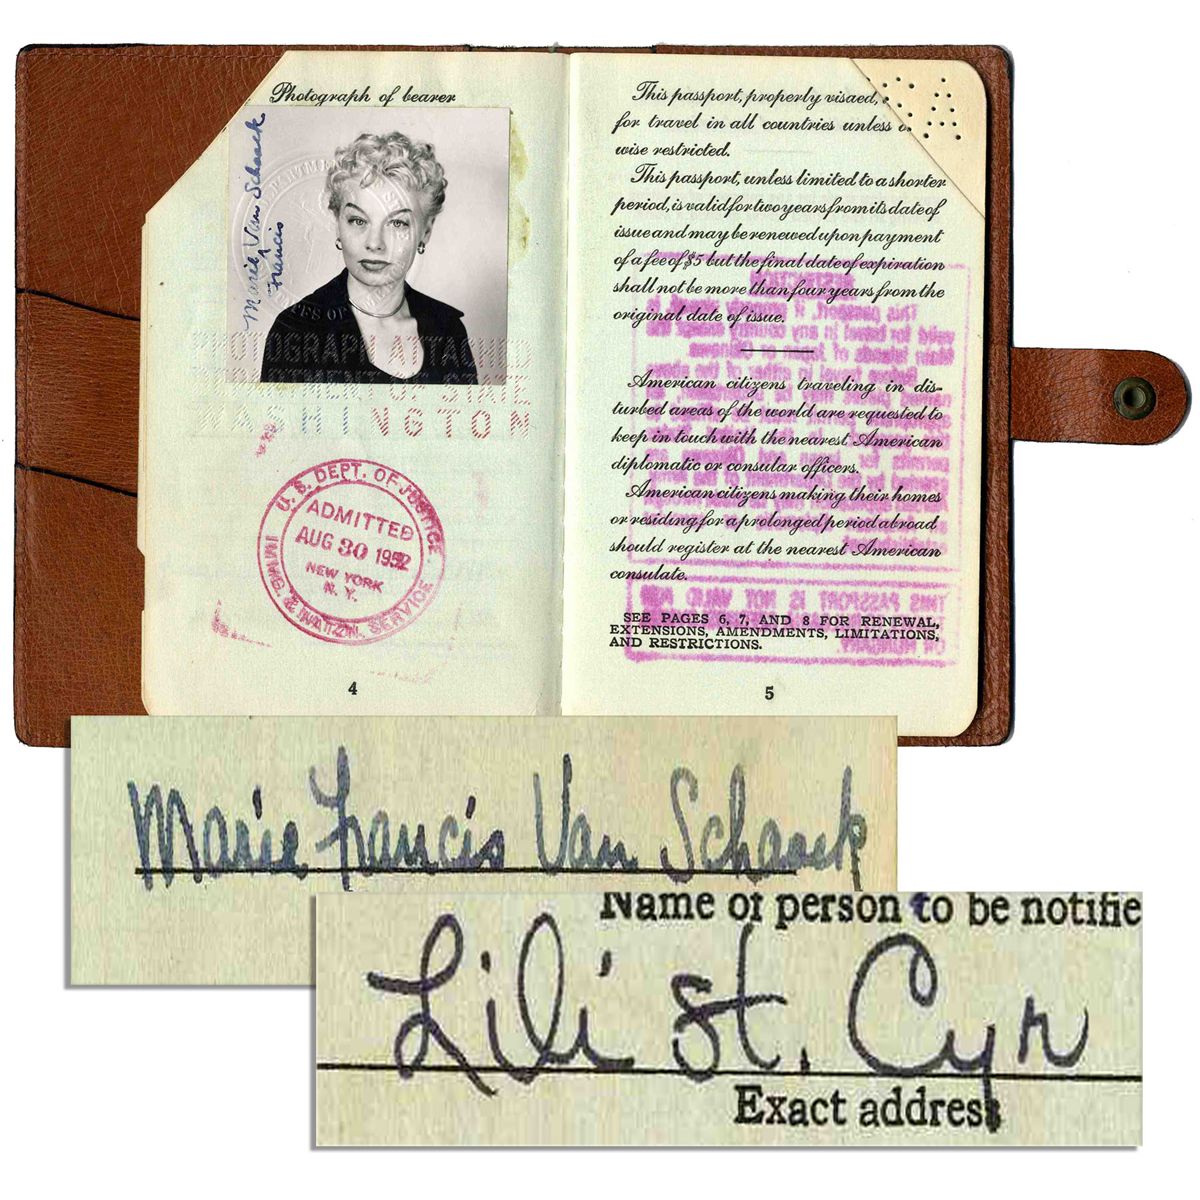 Photograph of bearer
Marie Van Schaack
Francis
PHOTOGRAPH ATTACHED
DEPARTMENT OF STATE
WASHINGTON
U. S. DEPT. OF JUSTICE
ADMITTED
AUG 30 1952
NEW YORK
N. Y.
IMMIG. & NATZN. SERVICE
4
This passport, properly visaed,
for travel in all countries unless
wise restricted.
This passport, unless limited to a shorter
period, is valid for two years from its date of
issue and may be renewed upon payment
of a fee of $5 but the final date of expiration
shall not be more than four years from the
original date of issue.
American citizens traveling in dis-
turbed areas of the world are requested to
keep in touch with the nearest American
diplomatic or consular officers.
American citizens making their homes
or residing for a prolonged period abroad
should register at the nearest American
consulate.
SEE PAGES 6, 7, AND 8 FOR RENEWAL,
EXTENSIONS, AMENDMENTS, LIMITATIONS,
AND RESTRICTIONS.
5
Marie Francis Van Schaack
Name of person to be notifie
Lili St. Cyr
Exact address